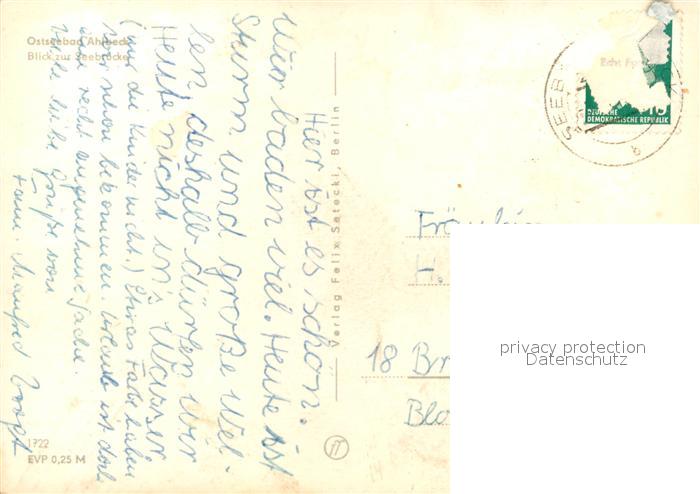 Ostseebad Ahlbeck
Blick zur Seebrücke
Hier ist es schön.
Wir baden viel. Heute ist
Sturm und große Wel-
len deshalb dürfen wir
Heute nicht ins Wasser
(nur die Kinder nicht.) Etwas Farbe haben
wir schon bekommen. Urlaub ist doch
eine recht angenehme Sache.
Viele liebe Grüße von
Fam. Manfred Voigt
1722
EVP 0,25 M
Verlag Felix Setecki, Berlin
Echt Foto
DEUTSCHE
DEMOKRATISCHE REPUBLIK
SEEB
b
Fräulein
H.
18 Br
Blo
privacy protection
Datenschutz